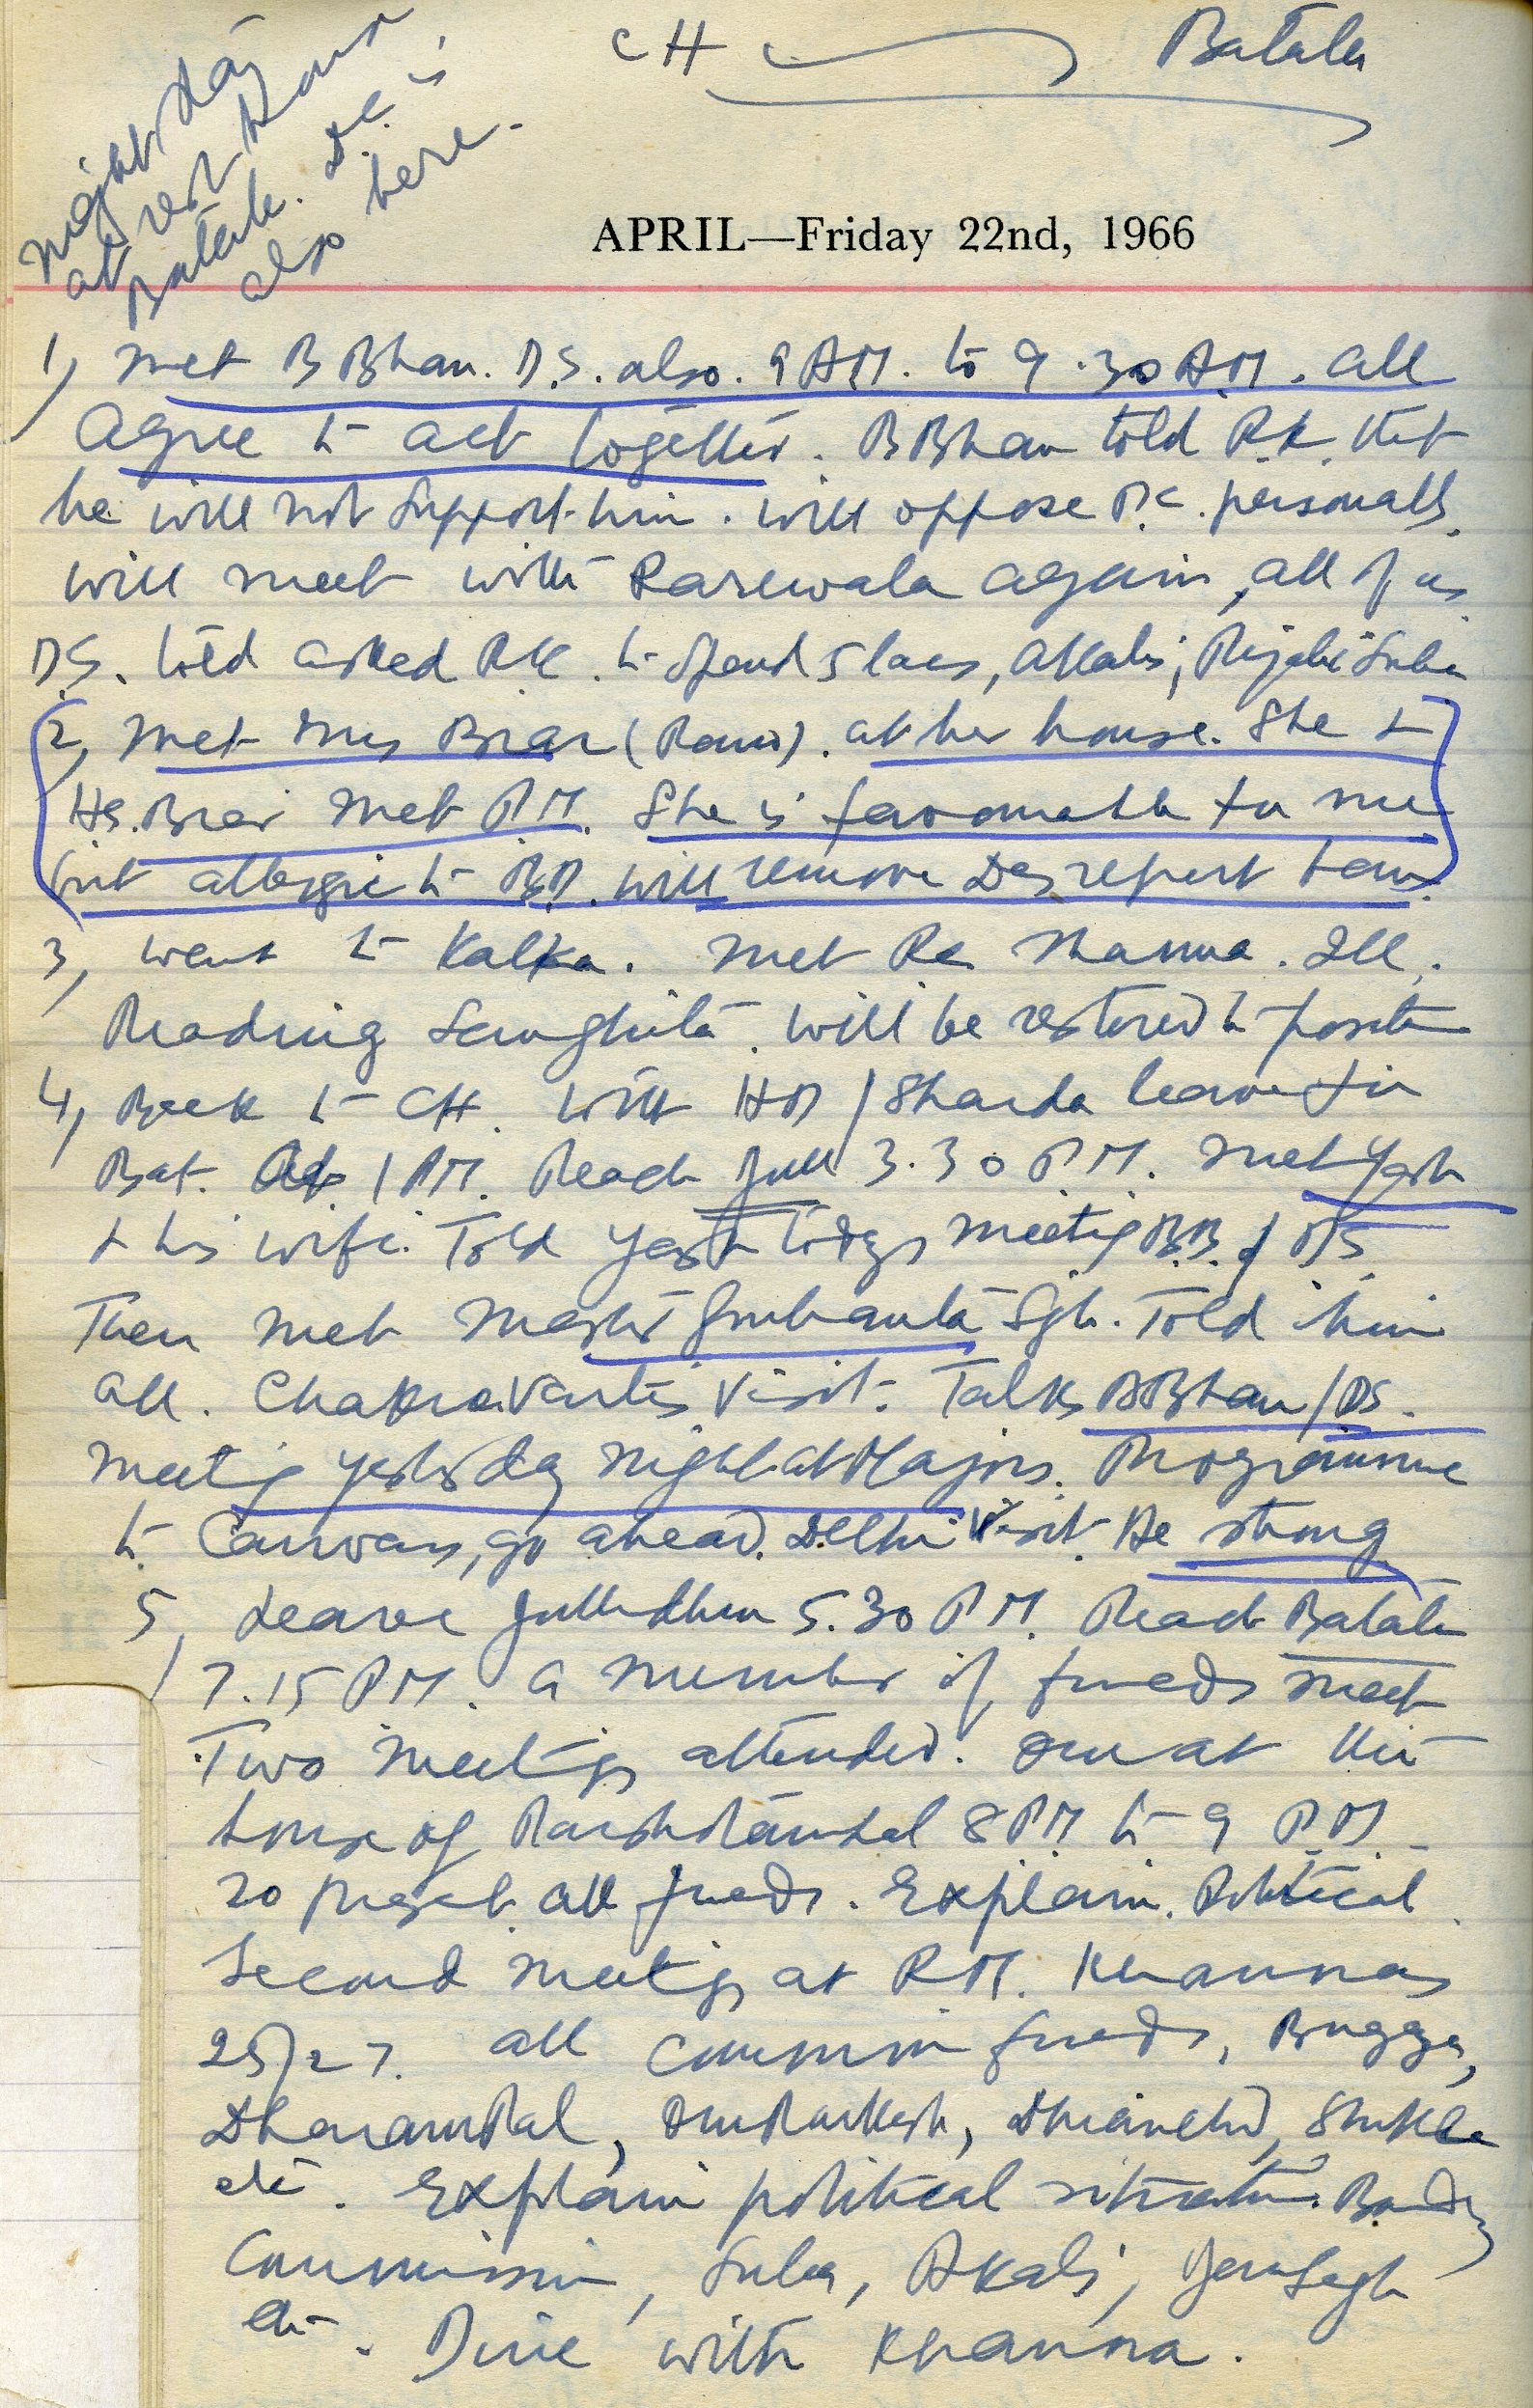 CH Batala
Night stay
at rest house
Batala. D.C. is
also here.
APRIL—Friday 22nd, 1966
1, Met B Bhan. D.S. also. 9 AM. to 9.30 AM. All
agree to act together. B Bhan told R.K. that
he will not support him. Will oppose personally.
Will meet with Rarewala again, all of us
D.S. told asked R.K. to spend 5 lacs, Akalis, Punjabi Suba
2, Met Mrs Brar (Rani). at her house. She &
HS. Brar met PM. She is favourable to me
but allergic to will remove report
3, Went to Kalka. Met Khanna. Ill.
Reading. Will be restored to position
4, Back to CH. With HD / Sharda leave for
Bat. 1 PM. Reach Jull 3.30 PM. Met Yash
& his wife. Told Yash todays meeting B.B. & DS
Then met Master Gurbanta Sgh. Told him
all. Chakravartis visit. Talks B Bhan / DS.
Meeting yesterday night at Majors. Programme
to canvass, go ahead. Delhi visit. He strong
5, Leave Jullundhur 5.30 PM. Reach Batala
7.15 PM. A number of friends meet
Two meetings attended. One at the
house of 8 PM to 9 PM.
20 present all friends. Explain. Political
Second meeting at R.M. Khannas
25/27. All common friends, Bugga,
DharamPal, OmParkash, Dhianchd, Shukla
etc. Explain political situation. Boundary
Commission, Suba, Akalis, JanSagh
etc. Dine with Khanna.